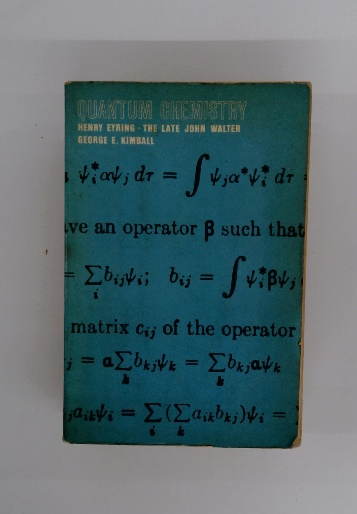 QUANTUM CHEMISTRY
HENRY EYRING · THE LATE JOHN WALTER
GEORGE E. KIMBALL
ψᵢ*αψⱼ dτ = ∫ψⱼα*ψᵢ* dτ =
ve an operator β such that
= ∑ᵢ bᵢⱼψᵢ; bᵢⱼ = ∫ψᵢ*βψⱼ
matrix cᵢⱼ of the operator
ⱼ = α∑ₖ bₖⱼψₖ = ∑ₖ bₖⱼαψₖ
ⱼaᵢₖψᵢ = ∑ᵢ (∑ₖ aᵢₖbₖⱼ)ψᵢ =